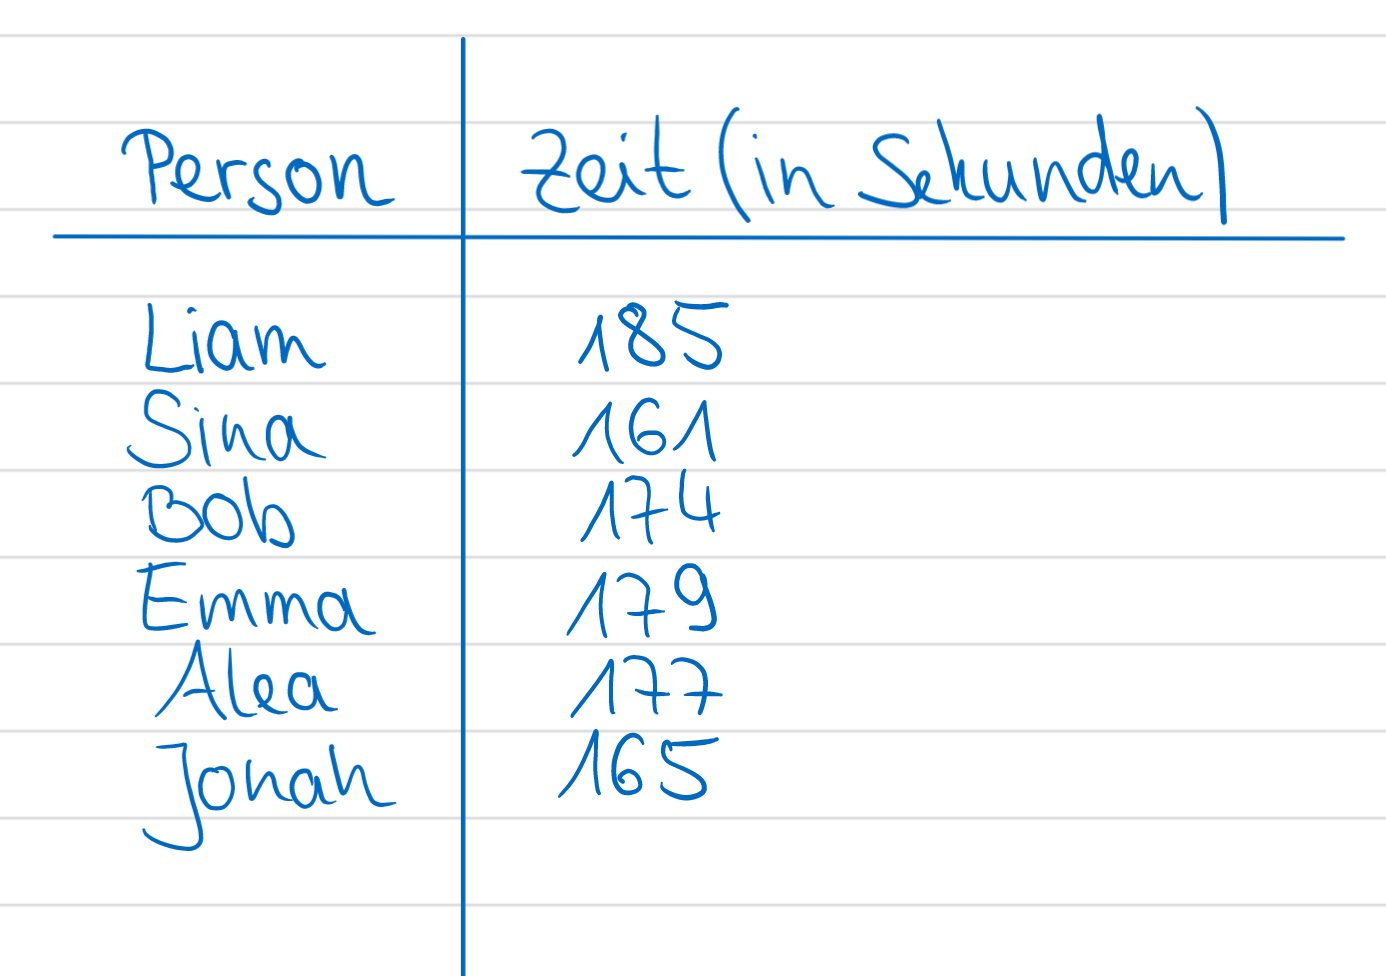 Person Zeit (in Sekunden)
Liam 185
Sina 161
Bob 174
Emma 179
Alea 177
Jonah 165